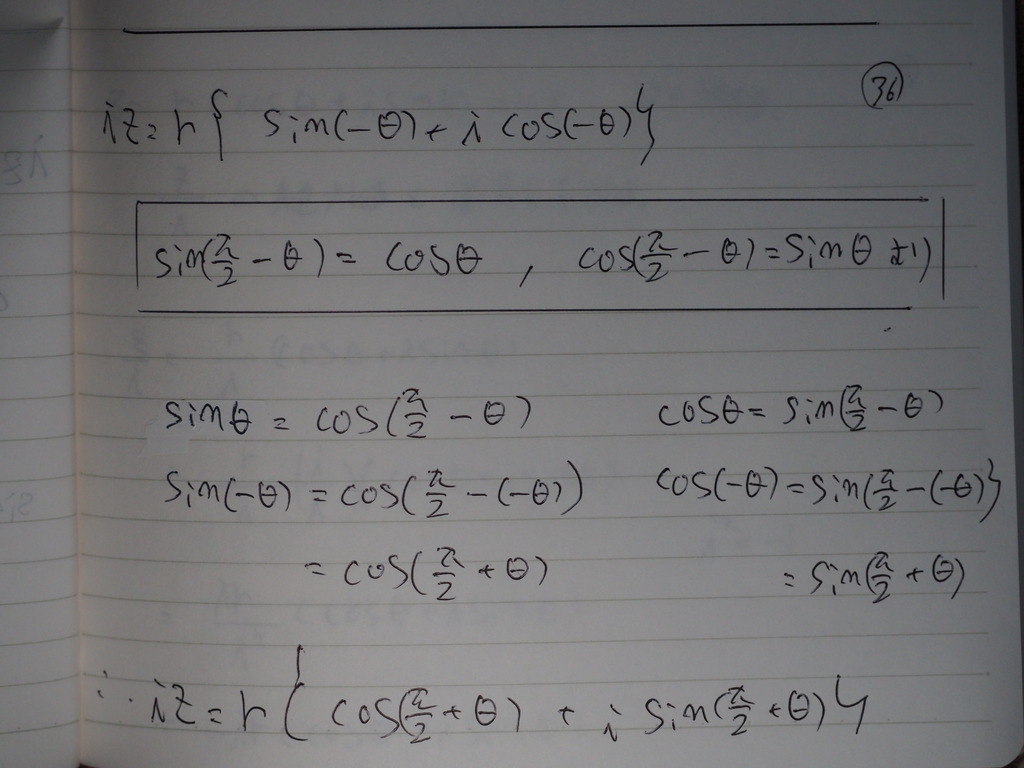 ㊱
iz = r{ sin(-θ) + i cos(-θ)}
sin(π/2 - θ) = cosθ , cos(π/2 - θ) = sinθ より
sinθ = cos(π/2 - θ) cosθ = sin(π/2 - θ)
sin(-θ) = cos(π/2 - (-θ)) cos(-θ) = sin(π/2 - (-θ)}
= cos(π/2 + θ) = sin(π/2 + θ)
∴ iz = r{ cos(π/2 + θ) + i sin(π/2 + θ)}